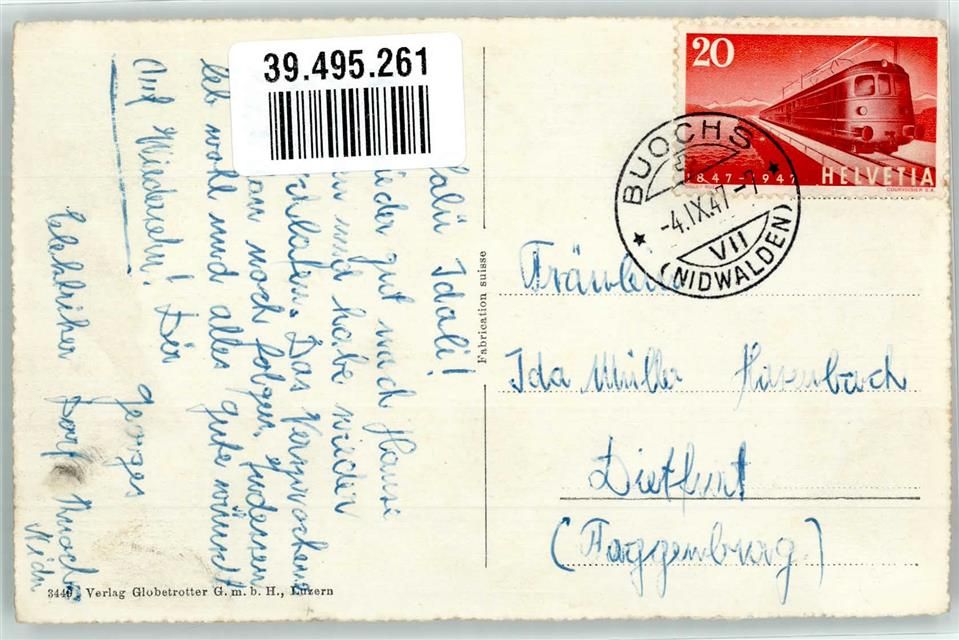 39.495.261
20
1847-1947
HELVETIA
COURVOISIER S.A.
BUOCHS
-4.IX.47-7
VII
(NIDWALDEN)
Salü Idali!
gut nach Hause
und habe wieder
geschlafen. Das Versprochene
kann noch folgen. Indessen
leb wohl und alles gute wünscht
Auf Wiedersehn! Dir
Georges
Elektriker Dorf Buochs
Nidw
Fabrication suisse
Fräulein
Ida Müller Hasenbach
Dietfurt
(Toggenburg)
3446 Verlag Globetrotter G. m. b. H., Luzern